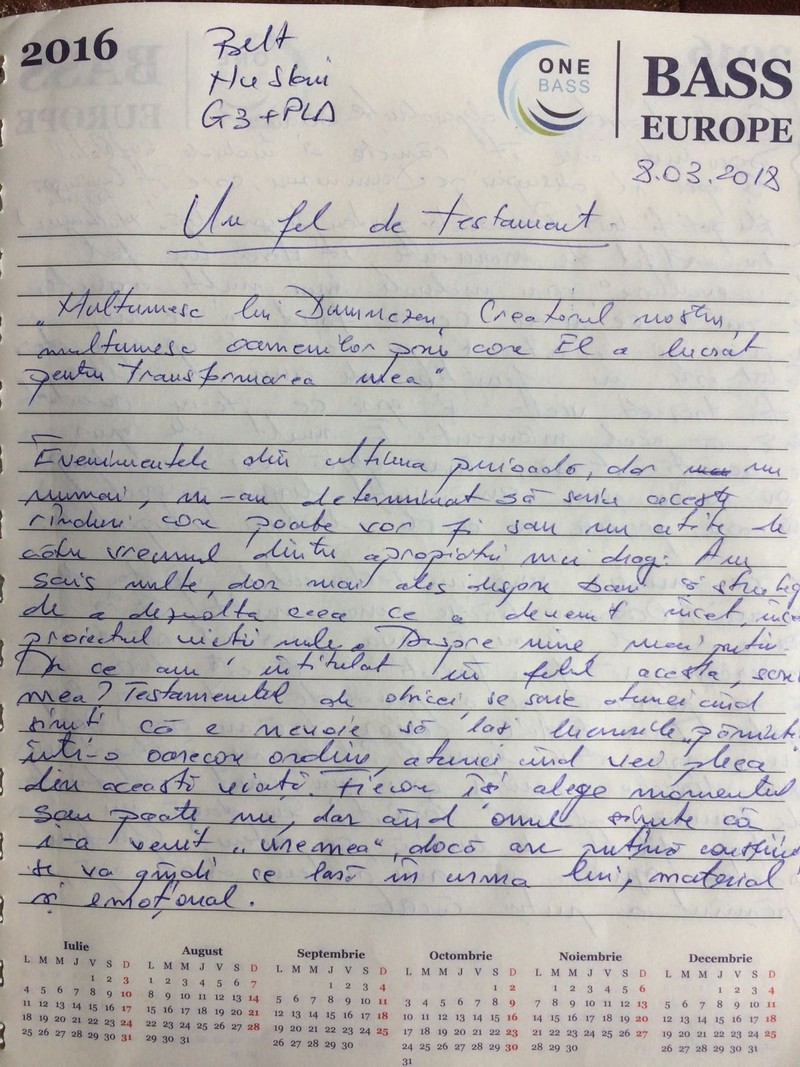 2016
Belt
G3+PLA
ONE
BASS
BASS
EUROPE
8.03.2018
Un fel de testament.
„Multumesc lui Dumnezeu, Creatorul nostru,
multumesc oamenilor prin care El a lucrat
pentru transformarea mea“
Evenimentele din ultima perioadă, dar nu
numai, m-au determinat să scriu aceste
rînduri care poate vor fi sau nu citite de
către vreunul dintre apropiatii mei dragi. Am
scris multe, dar mai ales despre bani și strateg
de a dezvolta ceea ce a devenit încet, înce
proiectul vietii mele. Despre mine, mai putin.
De ce am intitulat în felul acesta, scri
mea? Testamentul de obicei se scrie atunci cînd
simti că e nevoie să lasi lucrurile „pămînt
într-o oarecare ordine, atunci cînd vei pleca
din această viată. Fiecare își alege momentul
sau poate nu, dar cînd omul simte că
i-a venit „vremea“, dacă are putină conștiin
se va gîndi ce lasă în urma lui, material
și emoțional.
Iulie August Septembrie Octombrie Noiembrie Decembrie
L M M J V S D L M M J V S D L M M J V S D L M M J V S D L M M J V S D L M M J V S D
1 2 3 1 2 3 4 5 6 7 1 2 3 4 1 2 1 2 3 4 5 6 1 2 3 4
4 5 6 7 8 9 10 8 9 10 11 12 13 14 5 6 7 8 9 10 11 3 4 5 6 7 8 9 7 8 9 10 11 12 13 5 6 7 8 9 10 11
11 12 13 14 15 16 17 15 16 17 18 19 20 21 12 13 14 15 16 17 18 10 11 12 13 14 15 16 14 15 16 17 18 19 20 12 13 14 15 16 17 18
18 19 20 21 22 23 24 22 23 24 25 26 27 28 19 20 21 22 23 24 25 17 18 19 20 21 22 23 21 22 23 24 25 26 27 19 20 21 22 23 24 25
25 26 27 28 29 30 31 29 30 31 26 27 28 29 30 24 25 26 27 28 29 30 28 29 30 26 27 28 29 30 31
31